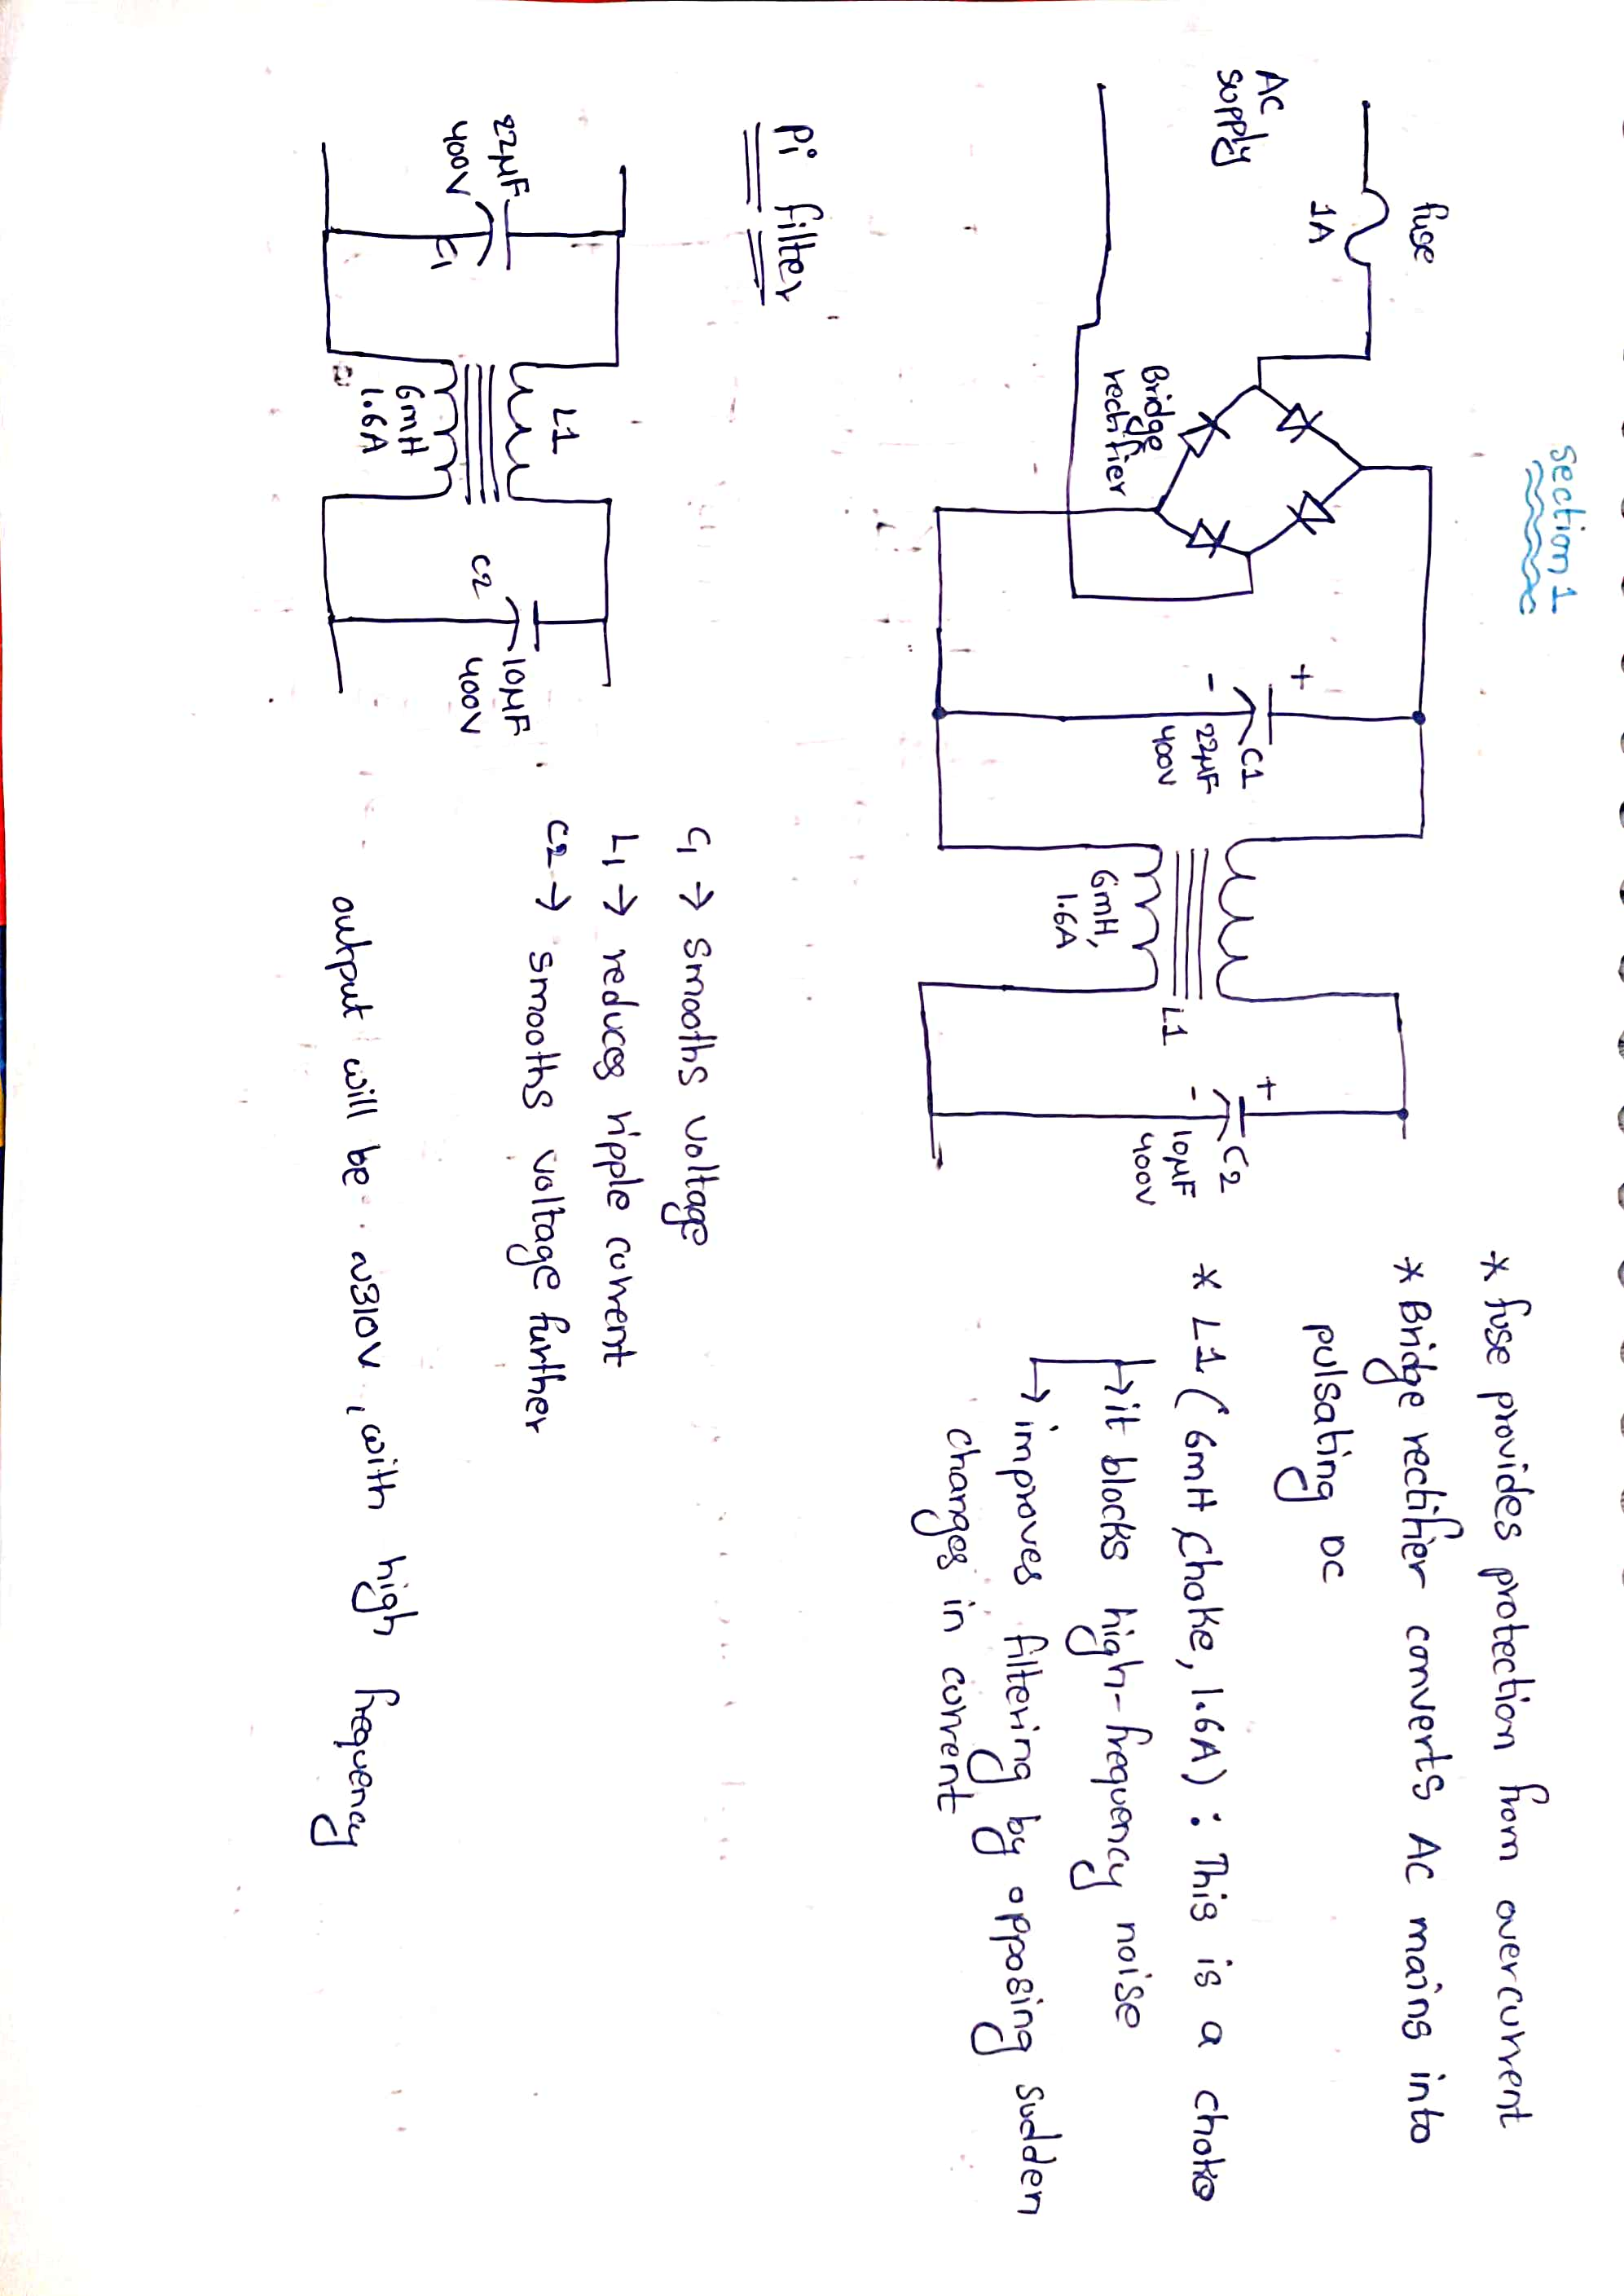 Section 1
fuse
1A
AC
supply
Bridge
rectifier
+
-
C1
22μF
400V
6mH,
1.6A
L1
+
-
C2
10μF
400V
* fuse provides protection from overcurrent
* Bridge rectifier converts AC mains into
pulsating DC
* L1 (6mH choke, 1.6A) : This is a choke
↳ it blocks high-frequency noise
↳ improves filtering by opposing sudden
changes in current
Pi filter
22μF
400V
C1
L1
6mH
1.6A
C2
10μF
400V
C1 → smooths voltage
L1 → reduces ripple current
C2 → smooths voltage further
output will be ~310V, with high frequency